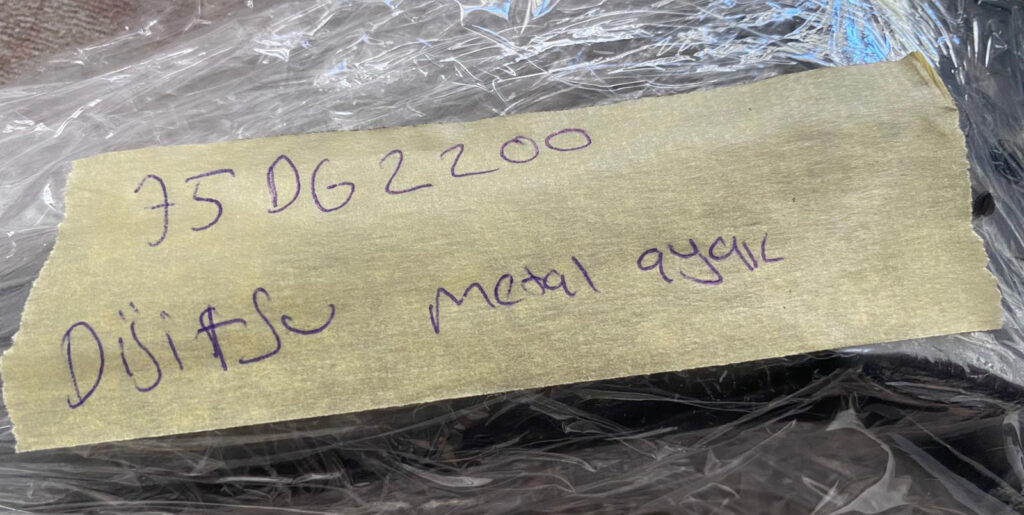 75 DG 2200
Dijitsu metal ayak